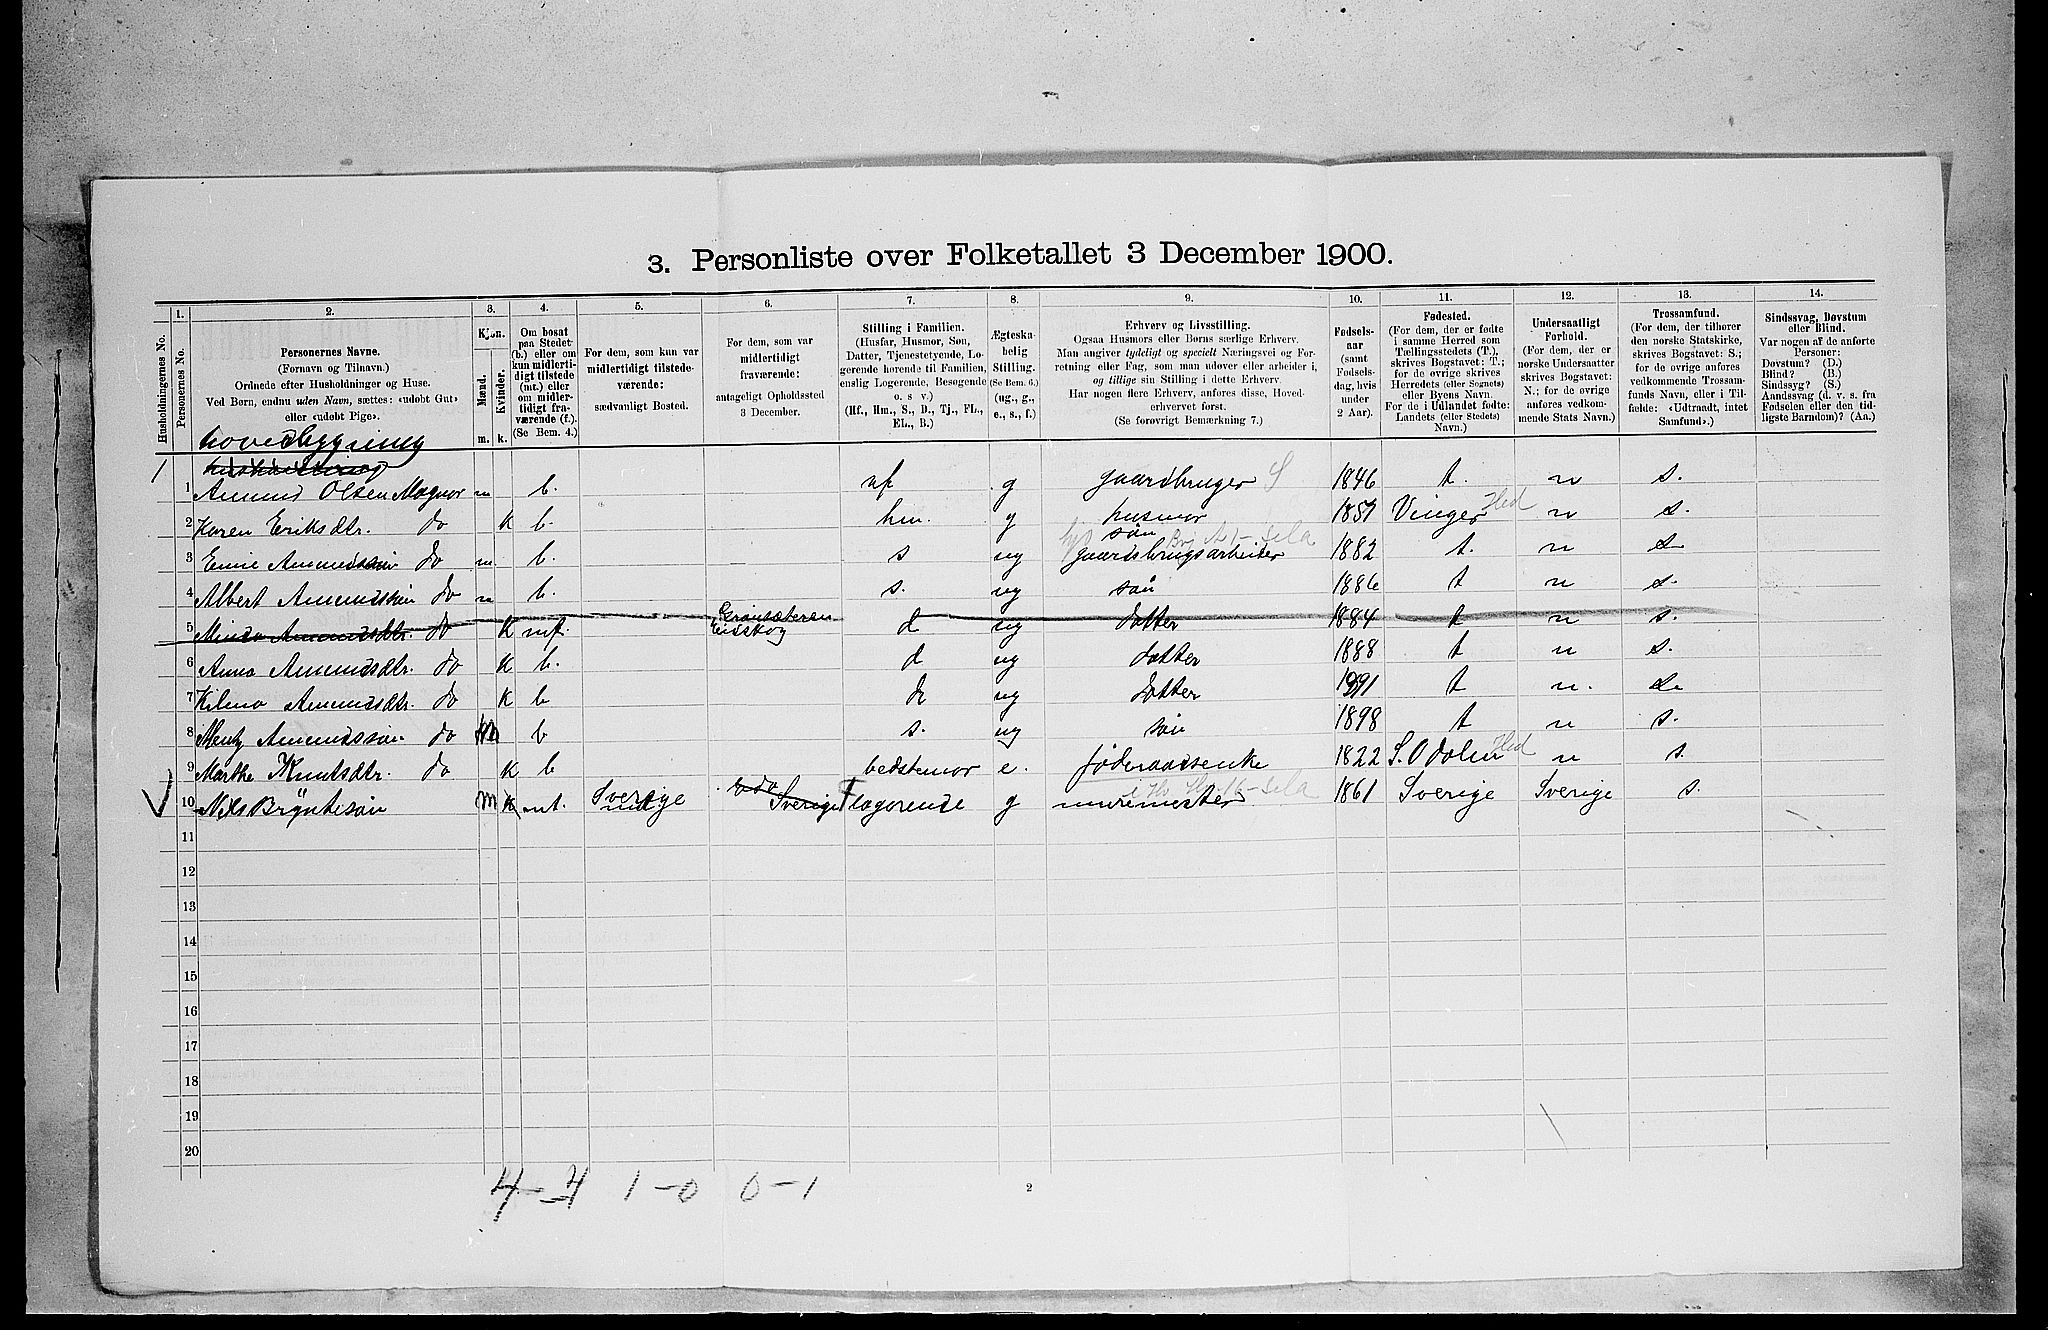 3. Personliste over Folketallet 3 December 1900.
1. 2. 3. 4. 5. 6. 7. 8. 9. 10. 11. 12. 13. 14.
Husholdningernes No.
Personernes No.
Personernes Navne.
(Fornavn og Tilnavn.)
Ordnede efter Husholdninger og Huse.
Ved Børn, endnu uden Navn, sættes: «udøbt Gut»
eller «udøbt Pige».
Kjøn.
Mænd.
Kvinder.
m. k.
Om bosat
paa Stedet
(b.) eller om
kun midlerti-
digt tilstede
(mt.) eller
om midler-
tidigt fra-
værende (f.).
(Se Bem. 4.)
For dem, som kun var
midlertidigt tilstede-
værende:
sædvanligt Bosted.
For dem, som var
midlertidigt
fraværende:
antageligt Opholdssted
3 December.
Stilling i Familien.
(Husfar, Husmor, Søn,
Datter, Tjenestetyende, Lo-
gerende hørende til Familien,
enslig Logerende, Besøgende
o. s. v.)
(Hf., Hm., S., D., Tj., FL.,
EL., B.)
Ægteska-
belig
Stilling.
(Se Bem. 6.)
(ug., g.,
e., s., f.)
Erhverv og Livsstilling.
Ogsaa Husmors eller Børns særlige Erhverv.
Man angiver tydeligt og specielt Næringsvei og For-
retning eller Fag, som man udøver eller arbeider i,
og tillige sin Stilling i dette Erhverv.
Har nogen flere Erhverv, anføres disse, Hoved-
erhvervet først.
(Se forøvrigt Bemærkning 7.)
Fødsels-
aar
(samt
Fødsels-
dag, hvis
under
2 Aar).
Fødested.
(For dem, der er fødte
i samme Herred som
Tællingsstedets (T.),
skrives Bogstavet: T.;
for de øvrige skrives
Herredets (eller Sognets)
eller Byens Navn.
For de i Udlandet fødte:
Landets (eller Stedets)
Navn.)
Undersaatligt
Forhold.
(For dem, der er
norske Undersaatter
skrives Bogstavet:
N.; for de øvrige
anføres vedkom-
mende Stats Navn.)
Trossamfund.
(For dem, der tilhører
den norske Statskirke,
skrives Bogstavet: S.;
for de øvrige anføres
vedkommende Trossam-
funds Navn, eller i Til-
fælde: «Udtraadt, intet
Samfund».)
Sindssvag, Døvstum
eller Blind.
Var nogen af de anførte
Personer:
Døvstum? (D.)
Blind? (B.)
Sindssyg? (S.)
Aandssvag (d. v. s. fra
Fødselen eller den tid-
ligste Barndom)? (Aa.)
hovedbygning
1
1 Amund Olsen Magnor m b. g gaardbruger S 1846 t. n s.
2 Karen Eriksdtr. do k b. hm. g husmor 1857 Vinger Hed n s.
3 Amundsøn do m b. s ug søn gaardsbrugsarbeider 1882 t. n s
4 Albert Amundsøn do m b. s. ug søn 1886 t n s.
5 Amundsdtr. do k mf. Eidskog d ug datter 1884 t n s.
6 Anna Amundsdtr. do k b. d ug datter 1888 t n s.
7 Amundsdtr. do k b d ug datter 1891 t n. s.
8 Amundssøn do m b s. ug søn 1898 t n s.
9 Marthe Knutsdtr. do k b bedstemor e. føderaadsenke 1822 S. Odalen Hed n s.
10 Nels Bryntesøn m k mt. Sverige Sverige logerende g muremester 1861 Sverige Sverige s.
11
12
13
14
15
16
17
18
19
20
4-4 1-0 0-1
2